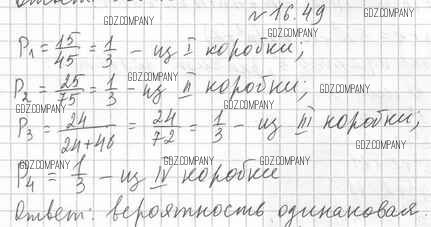 №16.49
P₁ = 15/45 = 1/3 - из I коробки;
P₂ = 25/75 = 1/3 - из II коробки;
P₃ = 24/24+48 = 24/72 = 1/3 - из III коробки;
P₄ = 1/3 - из IV коробки
Ответ: вероятность одинаковая.
GDZ.COMPANY
GDZ.COMPANY
GDZ.COMPANY
GDZ.COMPANY
GDZ.COMPANY
GDZ.COMPANY
GDZ.COMPANY
GDZ.COMPANY
GDZ.COMPANY
GDZ.COMPANY
GDZ.COMPANY
GDZ.COMPANY